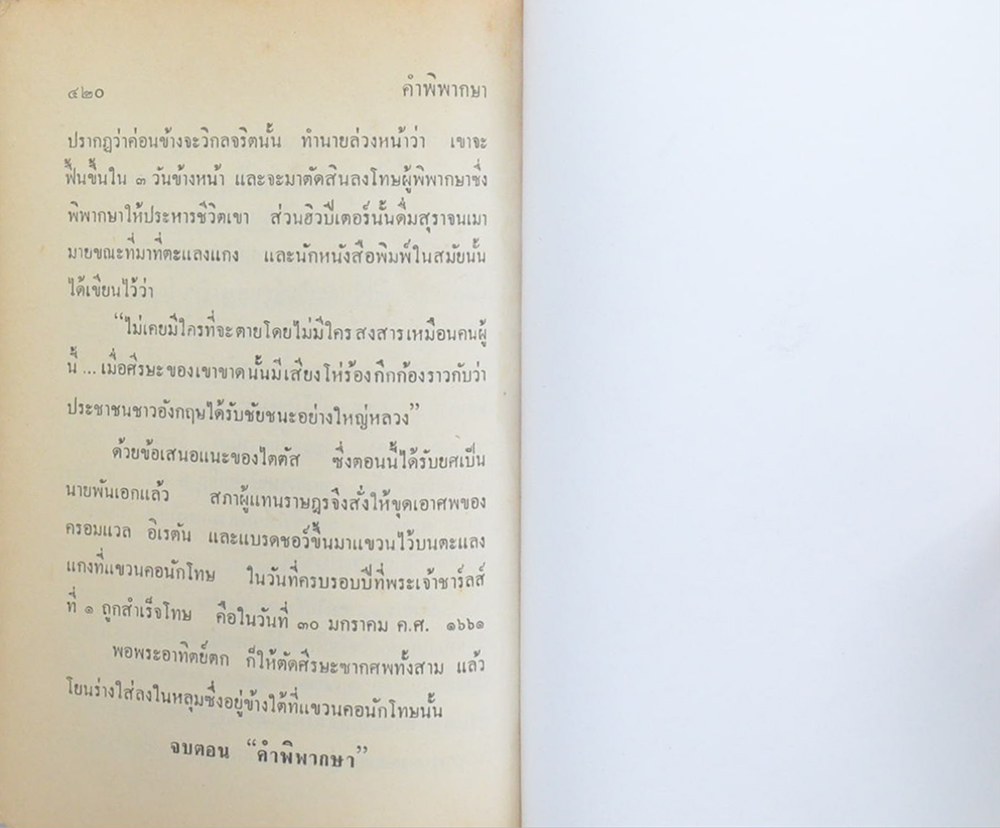 ๔๒๐ คำพิพากษา
ปรากฏว่าค่อนข้างจะวิกลจริตนั้น ทำนายล่วงหน้าว่า เขาจะ
ฟื้นขึ้นใน ๓ วันข้างหน้า และจะมาตัดสินลงโทษผู้พิพากษาซึ่ง
พิพากษาให้ประหารชีวิตเขา ส่วนฮิวปีเตอร์นั้นดื่มสุราจนเมา
มายขณะที่มาที่ตะแลงแกง และนักหนังสือพิมพ์ในสมัยนั้น
ได้เขียนไว้ว่า
“ไม่เคยมีใครที่จะตายโดยไม่มีใครสงสารเหมือนคนผู้
นี้ ... เมื่อศีรษะของเขาขาดนั้นมีเสียงโห่ร้องกึกก้องราวกับว่า
ประชาชนชาวอังกฤษได้รับชัยชนะอย่างใหญ่หลวง”
ด้วยข้อเสนอแนะของไตตัส ซึ่งตอนนี้ได้รับยศเป็น
นายพันเอกแล้ว สภาผู้แทนราษฎรจึงสั่งให้ขุดเอาศพของ
ครอมแวล อิเรตัน และแบรดชอว์ขึ้นมาแขวนไว้บนตะแลง
แกงที่แขวนคอนักโทษ ในวันที่ครบรอบปีที่พระเจ้าชาร์ลส์
ที่ ๑ ถูกสำเร็จโทษ คือในวันที่ ๓๐ มกราคม ค.ศ. ๑๖๖๑
พอพระอาทิตย์ตก ก็ให้ตัดศีรษะซากศพทั้งสาม แล้ว
โยนร่างใส่ลงในหลุมซึ่งอยู่ข้างใต้ที่แขวนคอนักโทษนั้น
จบตอน “คำพิพากษา”